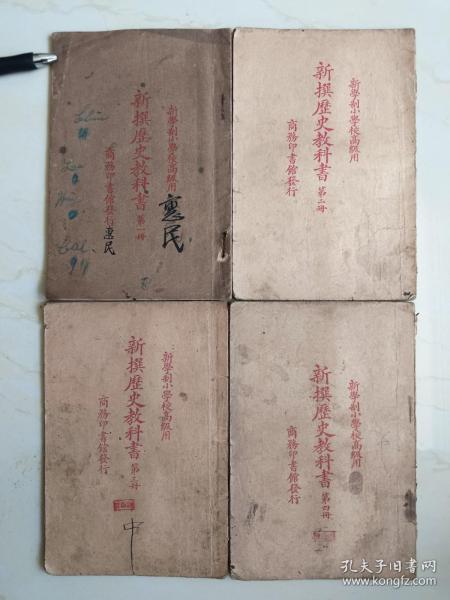 新學制小學校高級用
新撰歷史教科書 第一冊
商務印書館發行
惠民
惠民
新學制小學校高級用
新撰歷史教科書 第二冊
商務印書館發行
新學制小學校高級用
新撰歷史教科書 第三冊
商務印書館發行
中
新學制小學校高級用
新撰歷史教科書 第四冊
商務印書館發行
孔夫子旧书网
www.kongfz.com